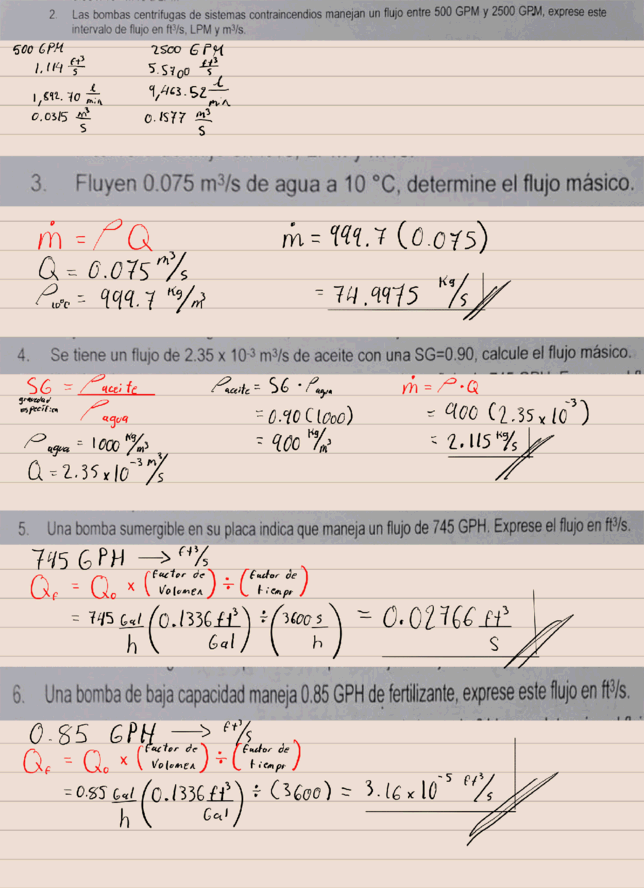 2. Las bombas centrifugas de sistemas contraincendios manejan un flujo entre 500 GPM y 2500 GPM, exprese este
intervalo de flujo en ft³/s, LPM y m³/s.
500 GPM 2500 GPM
1.114 ft³/s 5.5700 ft³/s
1,892.70 l/min 9,463.52 l/min
0.0315 m³/s 0.1577 m³/s
3. Fluyen 0.075 m³/s de agua a 10 °C, determine el flujo másico.
ṁ = ρ Q ṁ = 999.7 (0.075)
Q = 0.075 m³/s
ρ10°C = 999.7 Kg/m³ = 74.9975 Kg/s
4. Se tiene un flujo de 2.35 x 10⁻³ m³/s de aceite con una SG=0.90, calcule el flujo másico.
SG = ρaceite / ρagua ρaceite = SG · ρagua ṁ = ρ·Q
gravedad especifica = 0.90 (1000) = 900 (2.35 x 10⁻³)
ρagua = 1000 Kg/m³ = 900 Kg/m³ = 2.115 Kg/s
Q = 2.35 x 10⁻³ m³/s
5. Una bomba sumergible en su placa indica que maneja un flujo de 745 GPH. Exprese el flujo en ft³/s.
745 GPH → ft³/s
QF = Q0 x (Factor de Volumen) ÷ (Factor de tiempo)
= 745 Gal/h (0.1336 ft³/Gal) ÷ (3600 s/h) = 0.02766 ft³/s
6. Una bomba de baja capacidad maneja 0.85 GPH de fertilizante, exprese este flujo en ft³/s.
0.85 GPH → ft³/s
QF = Q0 x (Factor de Volumen) ÷ (Factor de tiempo)
= 0.85 Gal/h (0.1336 ft³/Gal) ÷ (3600) = 3.16 x 10⁻⁵ ft³/s